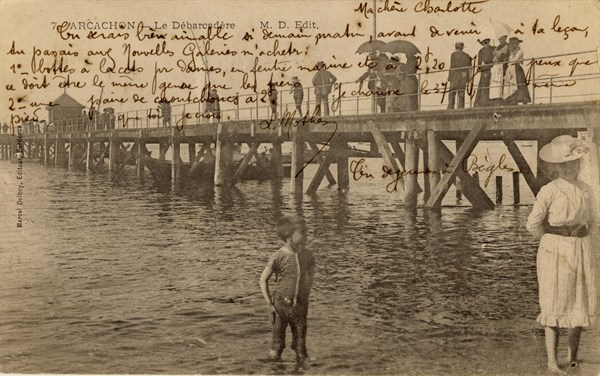 7 ARCACHON - Le Débarcadère M. D. Edit.
Ma chère Charlotte
Tu serais bien aimable si demain matin avant de venir à ta leçon,
tu passais aux Nouvelles Galeries m'acheter:
1° bottes à lacets pr dames, en feutre marine et à 2f20
ce doit être le même genre que les
je chausse le 37 je veux que
2 = une paire de caoutchoucs à
pieds
L. Mathon
Tu déjeuner à Bègles
Marcel Delboy,